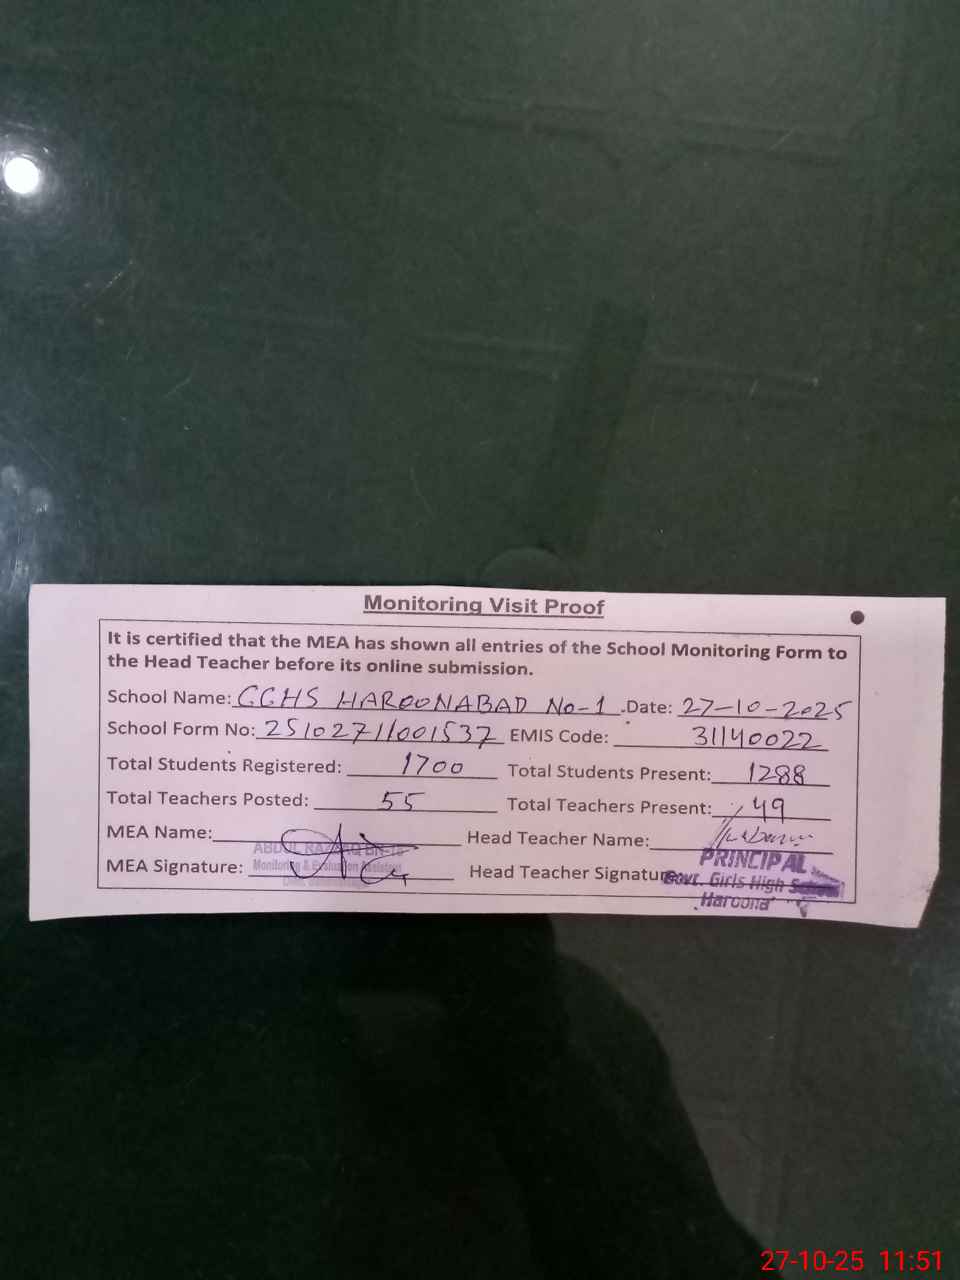 Monitoring Visit Proof
It is certified that the MEA has shown all entries of the School Monitoring Form to
the Head Teacher before its online submission.
School Name: GGHS HAROONABAD No-1 .Date: 27-10-2025
School Form No: 25102711001537 EMIS Code: 31140022
Total Students Registered: 1700 Total Students Present: 1288
Total Teachers Posted: 55 Total Teachers Present: 49
MEA Name: Head Teacher Name:
ABDUL RAZZAQ
MEA Signature: Monitoring & Evaluation Assistant Head Teacher Signature
PRINCIPAL
Govt. Girls High School
27-10-25 11:51